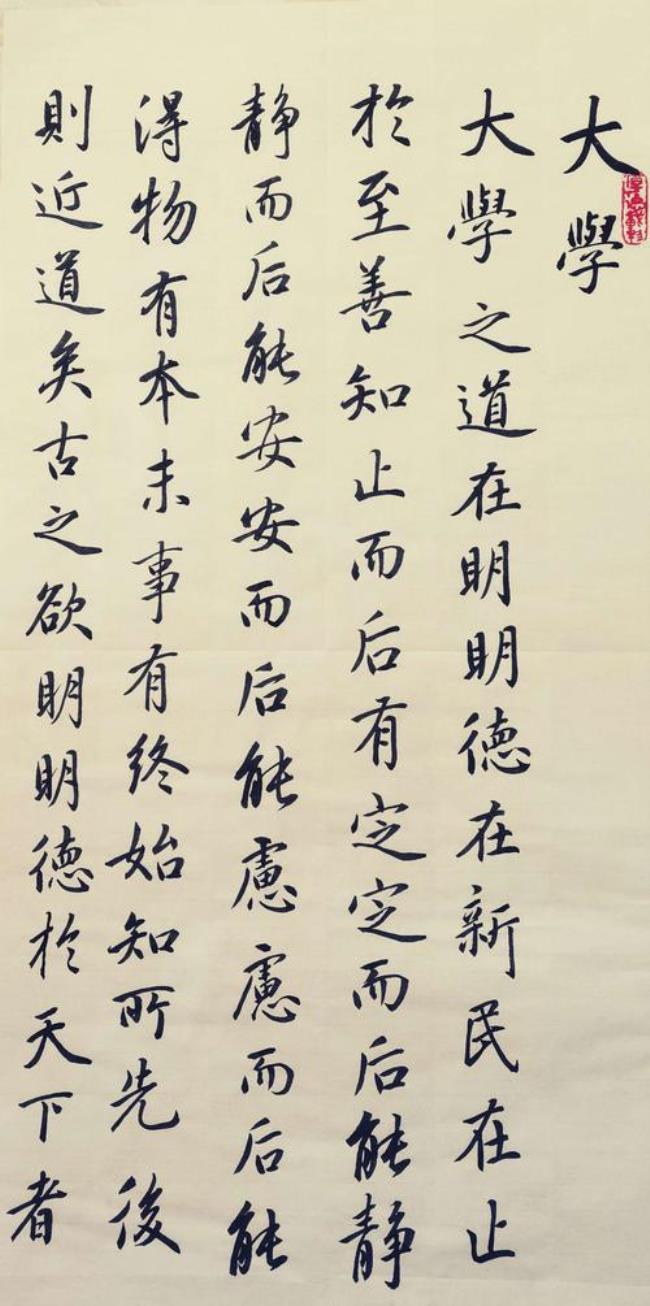 大學
大學之道在明明德在新民在止
於至善知止而后有定定而后能静
静而后能安安而后能慮慮而后能
得物有本末事有終始知所先後
則近道矣古之欲明明德於天下者